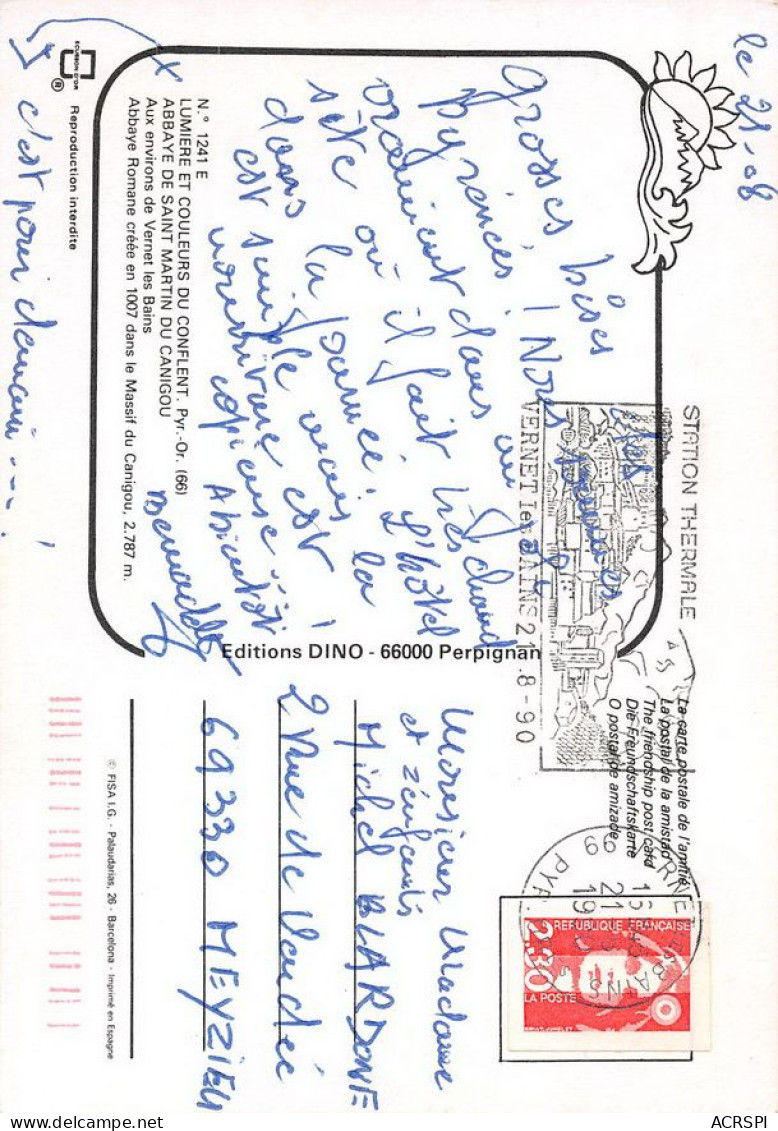 le 21-08
Grosses bises des
Pyrénées ! Nous sommes
vraiment dans un
où il fait très chaud
dans la journée. L'hôtel
est simple mais la
nourriture est
copieuse...
A bientôt
Bernadette
c'est pour demain --- !
N.° 1241 E
LUMIERE ET COULEURS DU CONFLENT. Pyr.-Or. (66)
ABBAYE DE SAINT MARTIN DU CANIGOU
Aux environs de Vernet les Bains
Abbaye Romane créée en 1007 dans le Massif du Canigou, 2.787 m.
BOURBON D'OR
® Reproduction interdite
Editions DINO - 66000 Perpignan
© FISA I.G. - Palaudarias, 26 - Barcelona - Imprimé en Espagne
STATION THERMALE
VERNET les BAINS 21.8-90
La carte postale de l'amitié
La postal de la amistad
The friendship post card
Die Freundschaftskarte
O postal de amizade
REPUBLIQUE FRANÇAISE
2,30
LA POSTE
Monsieur Madame
et zenfants
Michel BLARDONE
2 Rue de Vendée
69330 MEYZIEU
ACRSPI